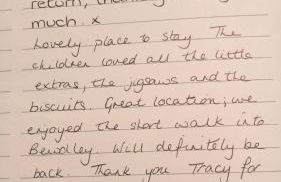 return,
much. x
Lovely place to stay The
children loved all the little
extras, the jigsaws and the
biscuits. Great location, we
enjoyed the short walk into
Bewdley. Will definitely be
back. Thank you Tracy for